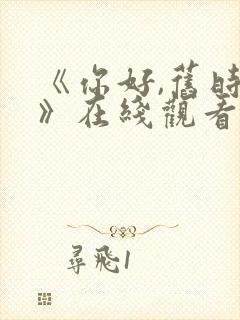 《你好,舊時
》在綫觀看
尋飛1